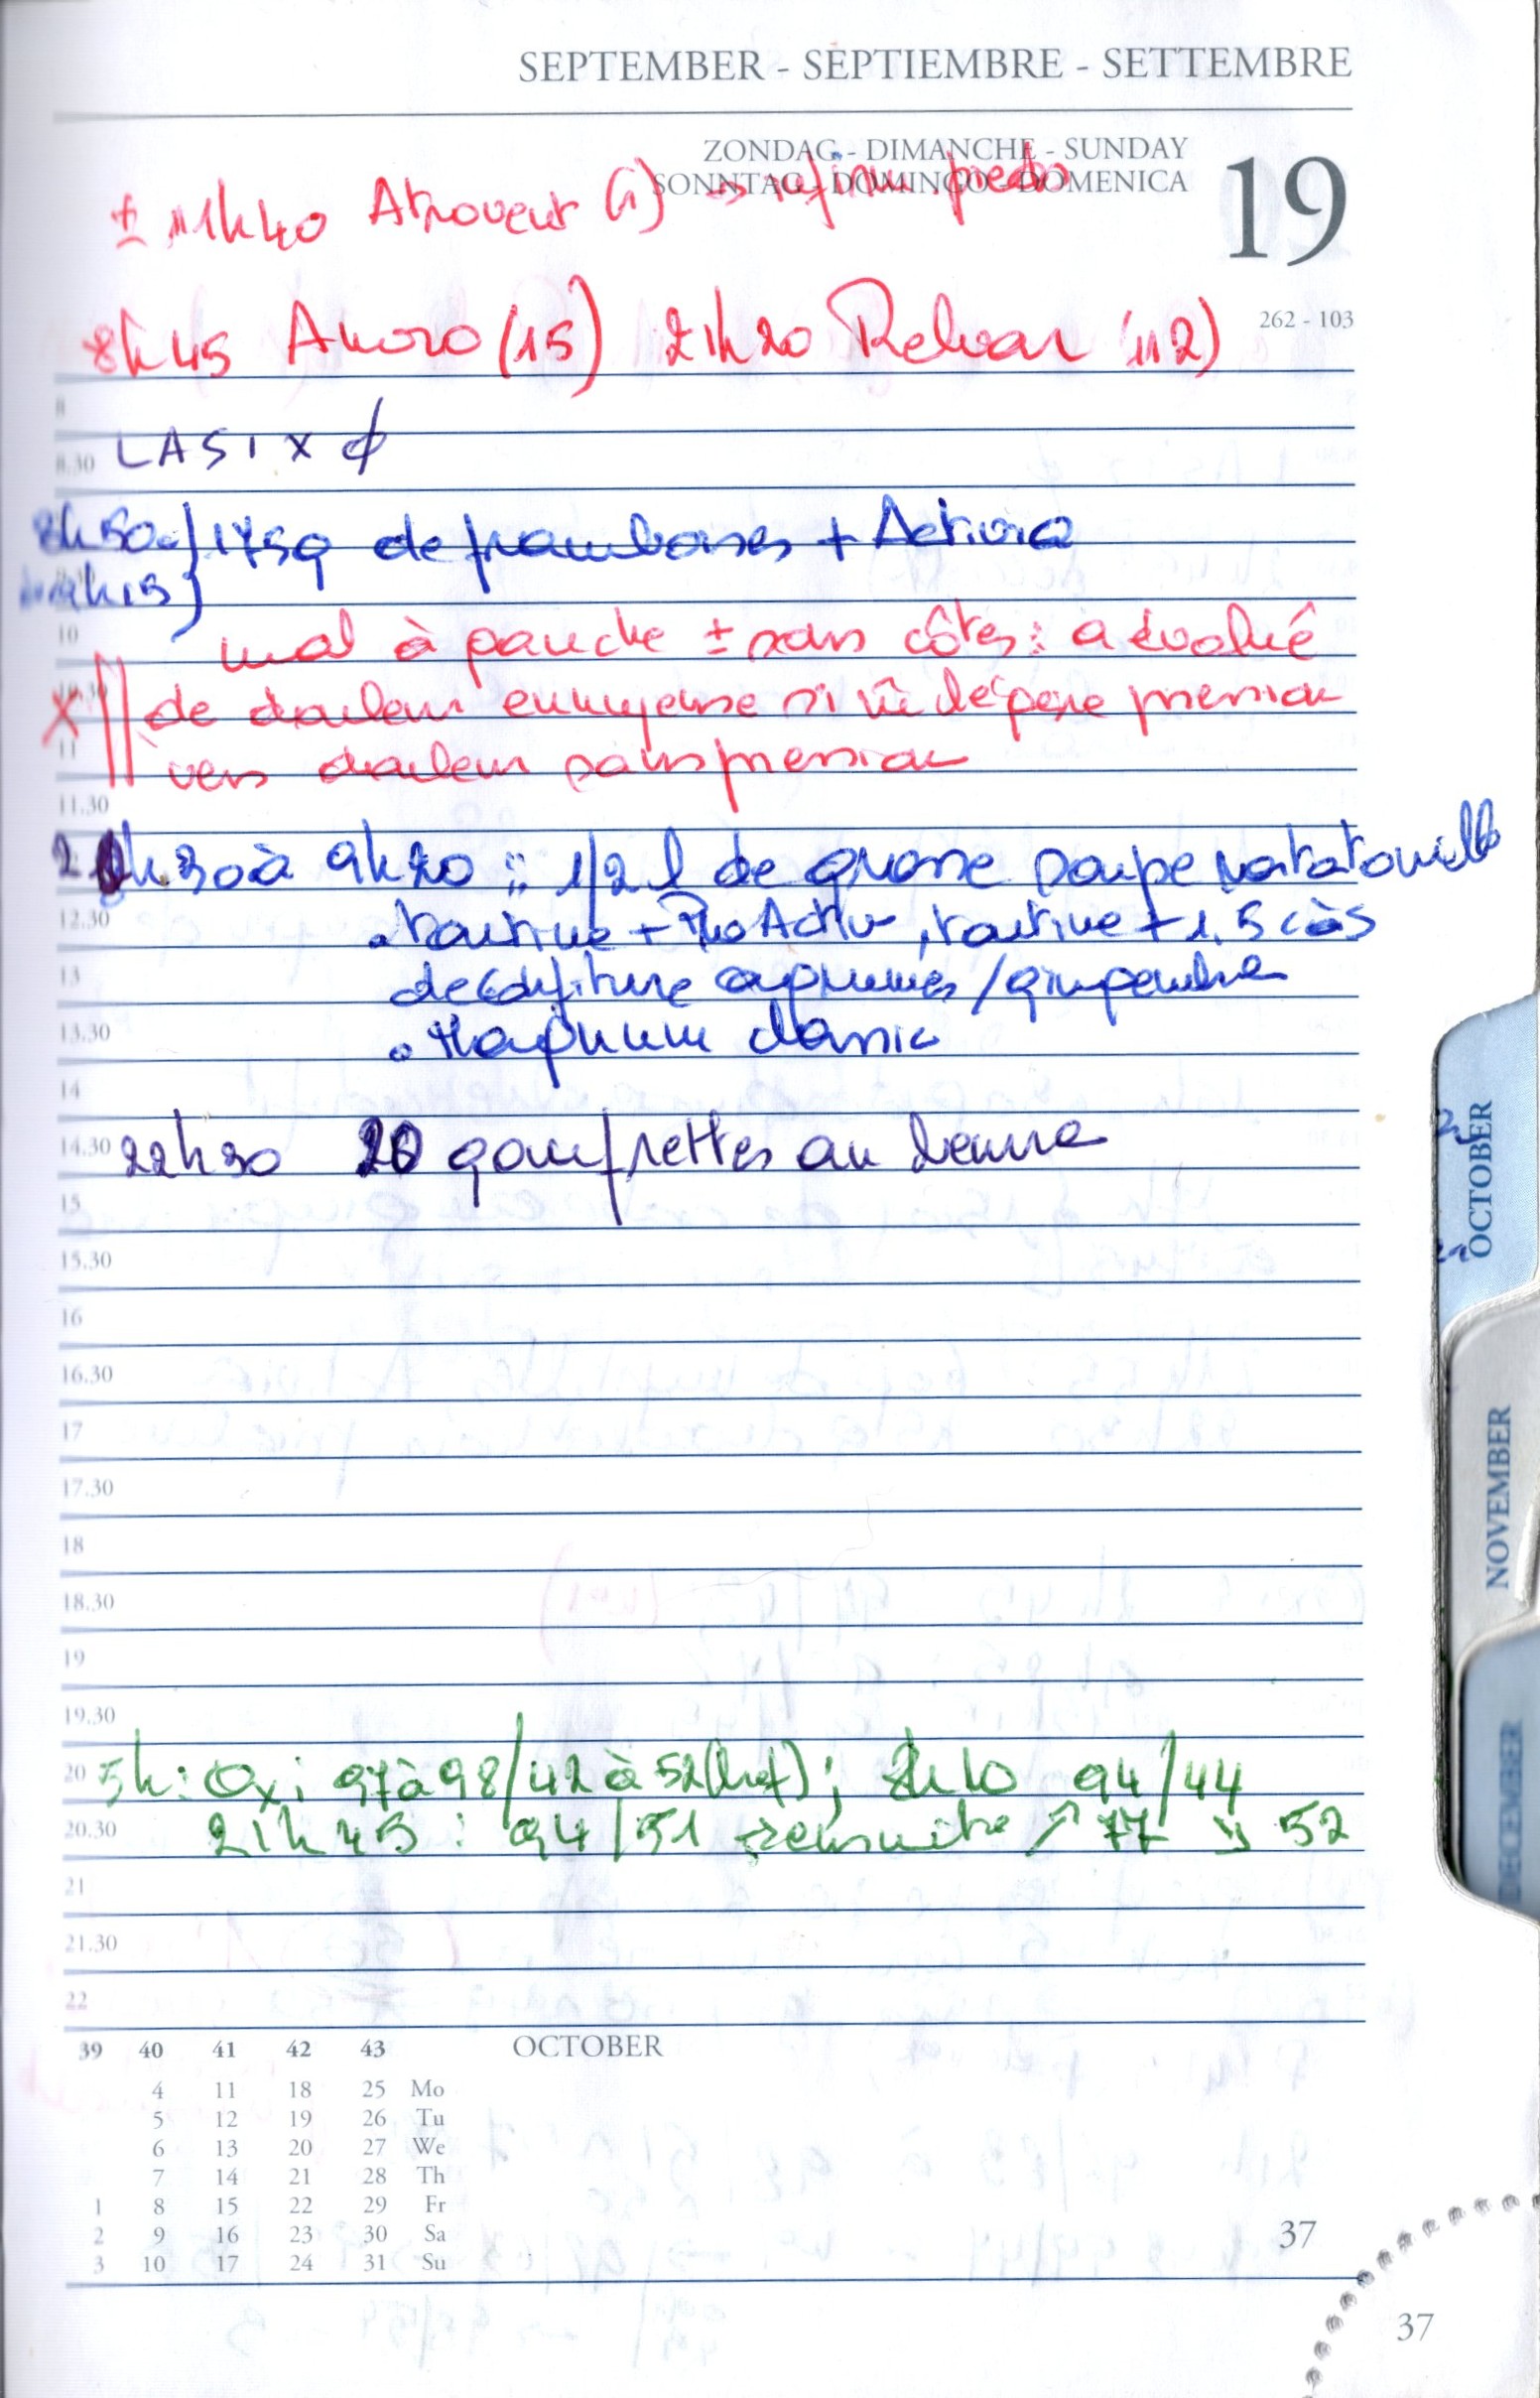 SEPTEMBER - SEPTIEMBRE - SETTEMBRE
ZONDAG - DIMANCHE - SUNDAY
SONNTAG - DOMINGO - DOMENICA
19
± 11h40 Atrovent (1) →
262 - 103
8h45 Anoro (15) 21h20 Relvar (12)
8
8.30 LASIX ϕ
8h50 175g de framboises + Activia
9h15
10 mal à gauche ± sous côtes : a évolué
de douleur ennuyeuse si légère pression
11 vers douleur sans pression
11.30
h30 à 9h20 : 1/2 l de grosse soupe ratatouille
12.30 . tartine + ProActiv, tartine + 1,5 càs
13 de confiture agrumes/gingembre
13.30 . Magnum classic
14
14.30 22h30 20 gaufrettes au beurre
15
15.30
16
16.30
17
17.30
18
18.30
19
19.30
20 5h : Oxi 97 à 98/42 à 52 ; 8h10 94/44
20.30 21h45 : 94/51 → ensuite ↗ 77 ↘ 52
21
21.30
22
39 40 41 42 43 OCTOBER
4 11 18 25 Mo
5 12 19 26 Tu
6 13 20 27 We
7 14 21 28 Th
1 8 15 22 29 Fr
2 9 16 23 30 Sa
3 10 17 24 31 Su
37
37
OCTOBER
NOVEMBER
DECEMBER